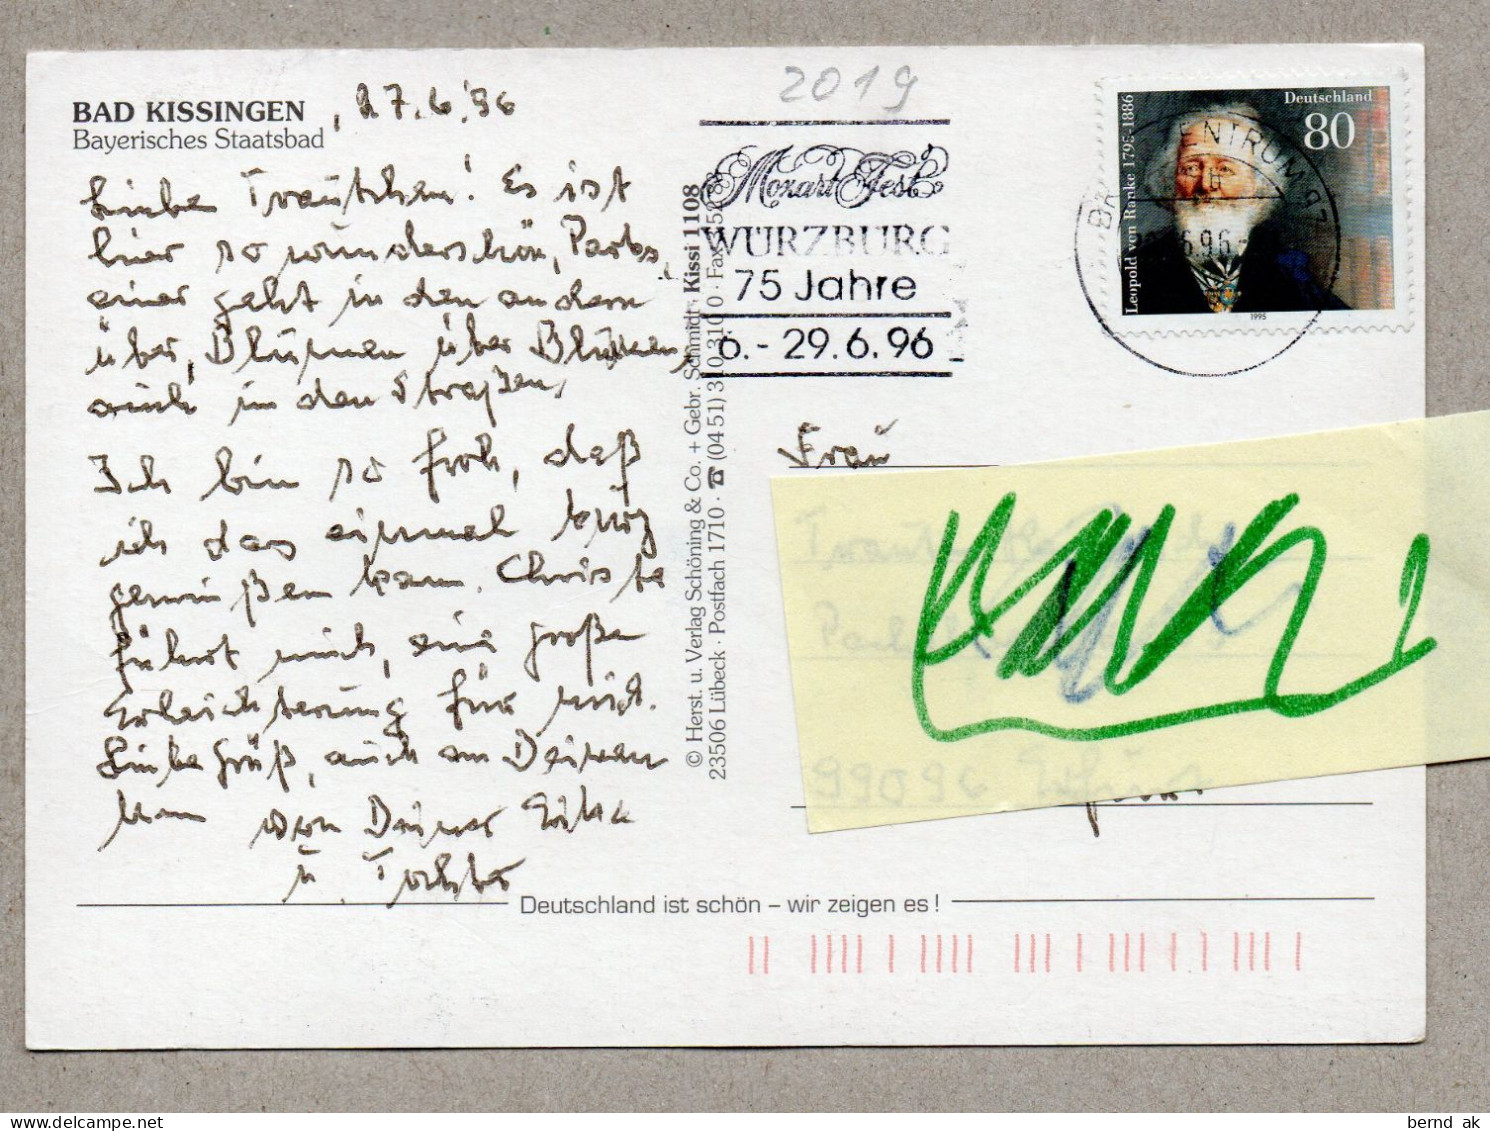 BAD KISSINGEN
Bayerisches Staatsbad
, 27.6.'96
Liebes Trautchen! Es ist
hier so wunderschön, Parks,
einer geht in den andern
über, Blumen über Blumen,
auch in den Straßen.
Ich bin so froh, daß
ich das einmal kurz
genießen kann. Christa
fährt mich, eine große
Erleichterung für mich.
Liebe Grüße, auch an Deinen
von Deiner
u. Tochter
2019
Mozart Fest
WÜRZBURG
75 Jahre
6.-29.6.96
© Herst. u. Verlag Schöning & Co. + Gebr. Schmidt · Kissi 1108
23506 Lübeck · Postfach 1710 · ☎ (0451) 3 10 310 · Fax
Deutschland
80
Leopold von Ranke 1795-1886
1995
ZENTRUM 97
6.96
Frau
99096 Erfurt
Deutschland ist schön – wir zeigen es!
bernd ak